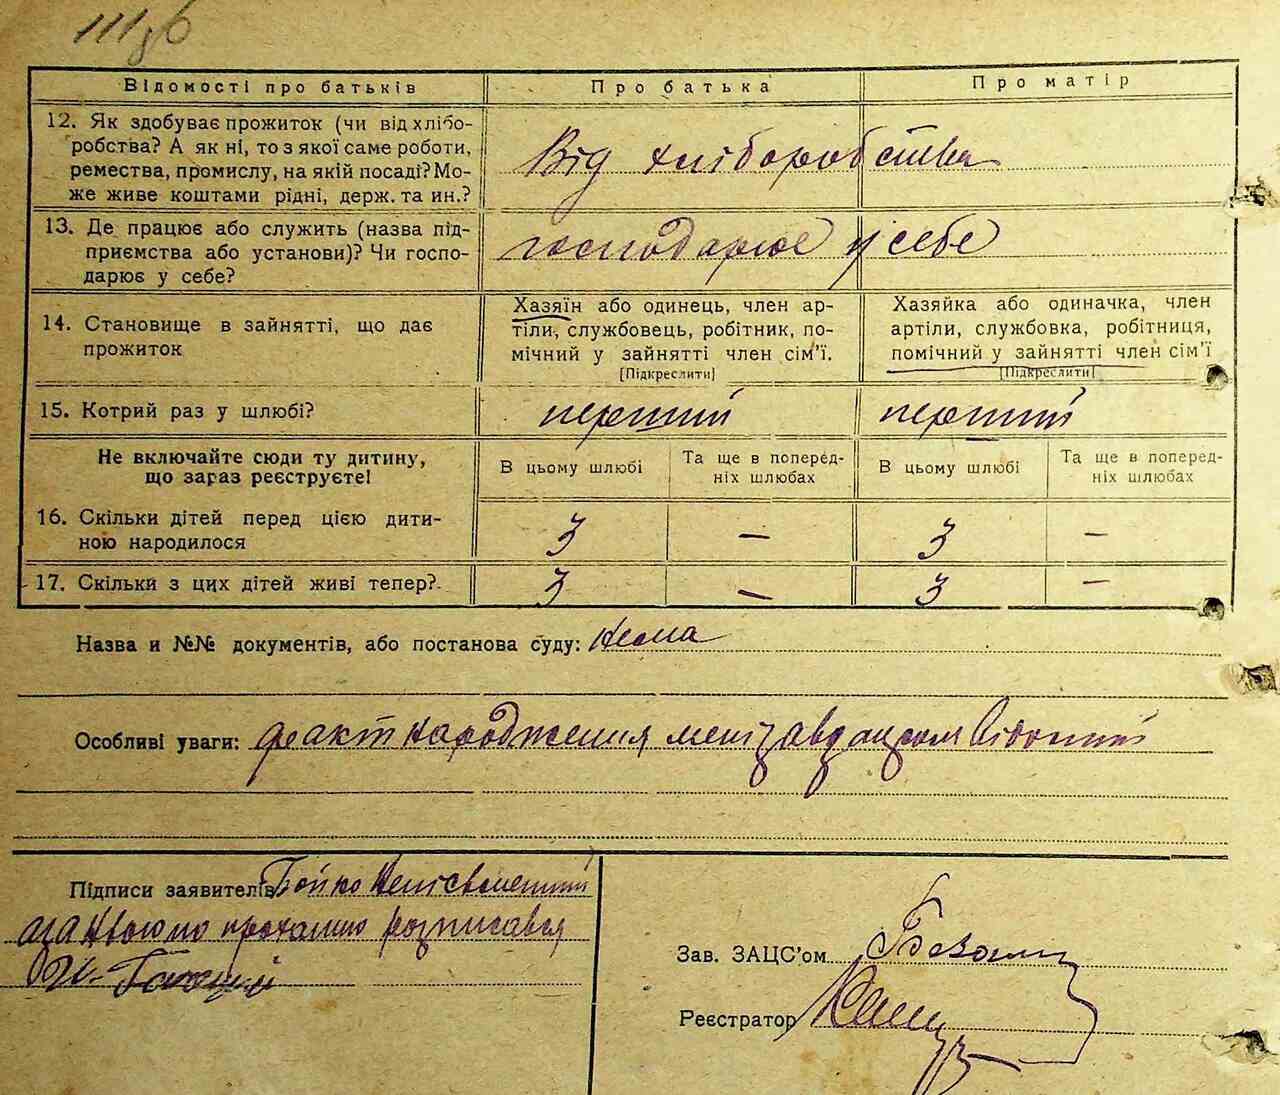 Відомості про батьків Про батька Про матір
12. Як здобуває прожиток (чи від хлібо-
робства? А як ні, то з якої саме роботи,
ремества, промислу, на якій посаді? Мо-
же живе коштами рідні, держ. та ин.?
Від хліборобства
13. Де працює або служить (назва під-
приємства або установи)? Чи госпо-
дарює у себе?
господарює у себе
14. Становище в зайнятті, що дає
прожиток
Хазяїн або одинець, член ар-
тіли, службовець, робітник, по-
мічний у зайнятті член сім'ї.
[Підкреслити]
Хазяйка або одиначка, член
артіли, службовка, робітниця,
помічний у зайнятті член сім'ї
[Підкреслити]
15. Котрий раз у шлюбі? перший перший
Не включайте сюди ту дитину,
що зараз реєструєте!
В цьому шлюбі
Та ще в поперед-
ніх шлюбах
В цьому шлюбі
Та ще в поперед-
ніх шлюбах
16. Скільки дітей перед цією дити-
ною народилося
3 — 3 —
17. Скільки з цих дітей живі тепер? 3 — 3 —
Назва и №№ документів, або постанова суду: Нема
Особливі уваги: факт народження мені
Підписи заявителів Бойко
розписався
Зав. ЗАЦС'ом
Реєстратор